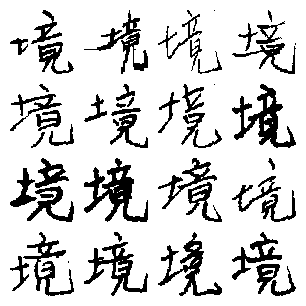 境境境境
境境境境
境境境境
境境境境